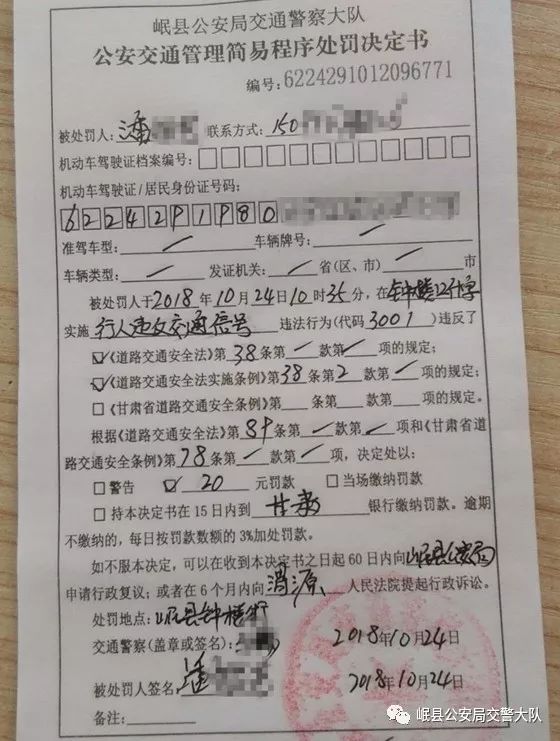 岷县公安局交通警察大队
公安交通管理简易程序处罚决定书
编号:6224291012096771
被处罚人:潘 联系方式:150
机动车驾驶证档案编号:
机动车驾驶证/居民身份证号码:
6224291980
准驾车型: / 车辆牌号: /
车辆类型: / 发证机关: / 省(区、市) / 市
被处罚人于2018年10月24日10时35分,在钟楼
实施行人违反交通信号违法行为(代码3001)违反了
☑《道路交通安全法》第38条第/款第/项的规定;
☑《道路交通安全法实施条例》第38条第2款第/项的规定;
□《甘肃省道路交通安全条例》第 条第 款第 项的规定。
根据《道路交通安全法》第89条第/款第/项和《甘肃省道
路交通安全条例》第78条第/款第/项,决定处以:
□警告 ☑20元罚款 □当场缴纳罚款
□持本决定书在15日内到甘肃银行缴纳罚款。逾期
不缴纳的,每日按罚款数额的3%加处罚款。
如不服本决定,可以在收到本决定书之日起60日内向岷县公安局
申请行政复议;或者在6个月内向渭源人民法院提起行政诉讼。
处罚地点:岷县钟楼街
交通警察(盖章或签名): 2018年10月24日
被处罚人签名:潘 2018年10月24日
备注:
岷县公安局交警大队